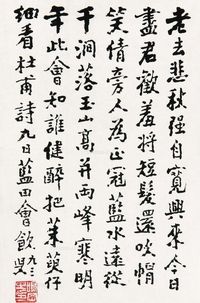 老去悲秋强自寬興來今日
盡君歡羞將短髮還吹帽
笑倩旁人為正冠藍水遠從
千澗落玉山高并兩峰寒明
年此會知誰健醉把茱萸仔
細看杜甫詩九日藍田會飲九三叟